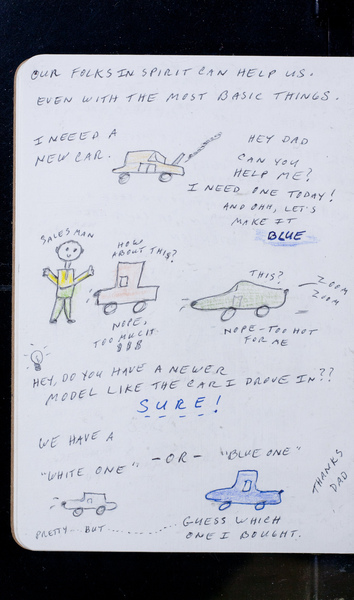 OUR FOLKS IN SPIRIT CAN HELP US.
EVEN WITH THE MOST BASIC THINGS.
I NEEED A
NEW CAR.
HEY DAD
CAN YOU
HELP ME?
I NEED ONE TODAY!
AND OHH, LET'S
MAKE IT
BLUE
SALESMAN
HOW
ABOUT THIS?
NOPE,
TOO MUCH
$$$
THIS?
ZOOM
ZOOM
NOPE-TOO HOT
FOR ME
HEY, DO YOU HAVE A NEWER
MODEL LIKE THE CAR I DROVE IN??
SURE!
WE HAVE A
"WHITE ONE" -OR- "BLUE ONE"
PRETTY... BUT............
GUESS WHICH
ONE I BOUGHT.
THANKS
DAD